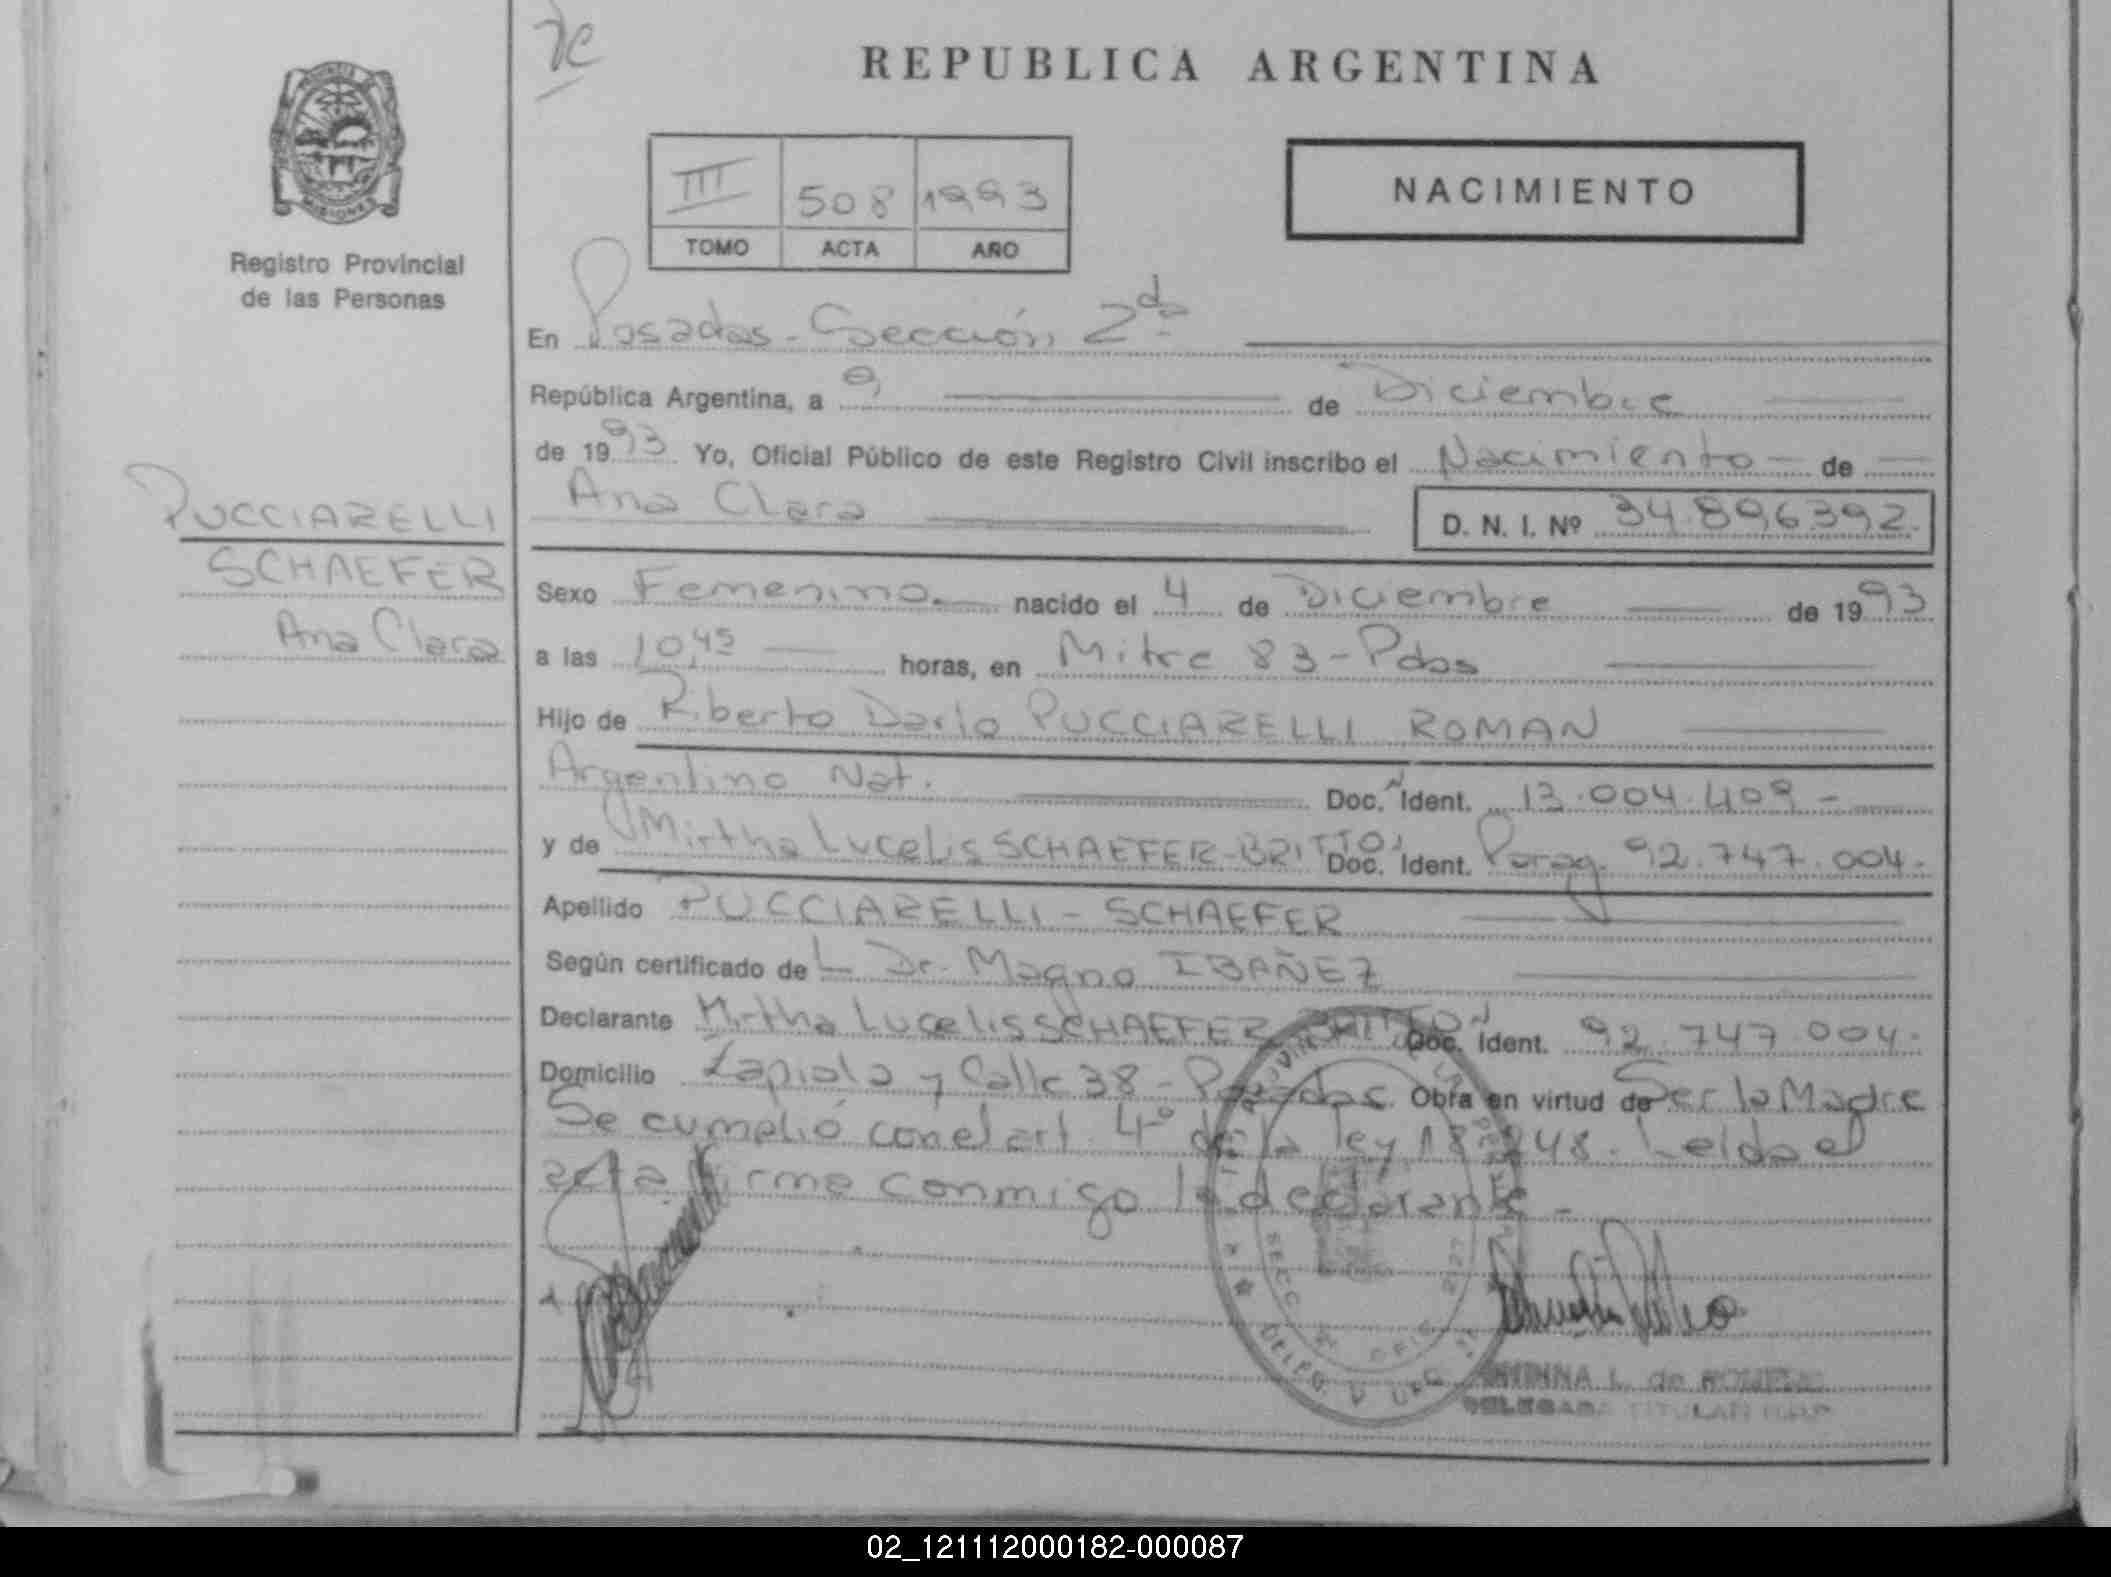 7c
REPUBLICA ARGENTINA
III 508 1993
TOMO ACTA AÑO
NACIMIENTO
MISIONES
Registro Provincial
de las Personas
En Posadas - Sección 2da
República Argentina, a 9 de Diciembre
de 1993 Yo, Oficial Público de este Registro Civil inscribo el Nacimiento de
Ana Clara D. N. I. Nº 34.896.392.
PUCCIARELLI
SCHAEFER
Ana Clara
Sexo Femenino. nacido el 4 de Diciembre de 1993
a las 10,45 horas, en Mitre 83 - Pdas
Hijo de Riberto Dario PUCCIARELLI ROMAN
Argentino Nat. Doc. Ident. 13.004.409 -
y de Mirtha Lucelis SCHAEFER-BRITTO, Doc. Ident. Parag. 92.747.004.
Apellido PUCCIARELLI - SCHAEFER
Según certificado de L Dr. Magno IBAÑEZ
Declarante Mirtha Lucelis SCHAEFER BRITTO Doc. Ident. 92.747.004.
Domicilio Lapiola y Calle 38 - Posadas. Obra en virtud de Ser la Madre
Se cumplió con el art. 4º de la ley 18.248. Leida el
acta firma conmigo la declarante -
L. de
DELEGADA TITULAR
02_121112000182-000087